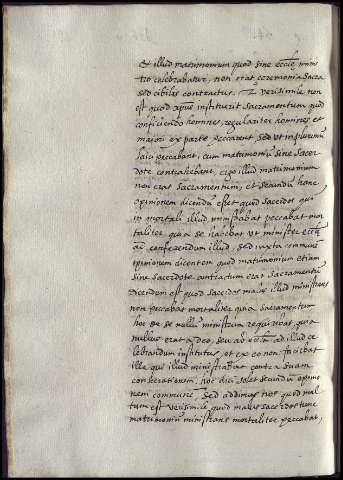 Et illud matrimonium quod sine eccle minis
tro celebrabatur, non erat ceremonia sacra
sed cibilis contractus. verisimile non
est quod xpus instituerit sacramentum quod
conficiendo homines regulariter homines et
maiori ex parte peccarent sed ut in plurimum
peccabant, cum matrimoniu sine sacer
dote contrahebant, ergo illud matrimonium
non erat sacramentum, et secundu hanc
opinionem dicendu esset quod sacerdos qui
in mortali illud ministrabat peccabat mor
taliter quia se habebat ut minister eccle
ad conferendum illud, sed iuxta comune
opinionem dicentem quod matrimonium etiam
sine sacerdote contractum erat sacramentu
dicendum est quod sacerdos malus illud ministrans
non peccabat mortaliter quia sacramentum
hoc de se nullu ministrum requirebat quia
nullus erat a deo, seu ab ad illud ce
lebrandum institutus, et ex eo non faciebat
ille qui illud ministrabat contra suam
consecrationem, hoc dici solet secundu opinio
nem comune. Sed addimus nos quod mul
tum est verisimile quod malus sacerdos tunc
matrimoniu ministrans mortaliter peccabat,